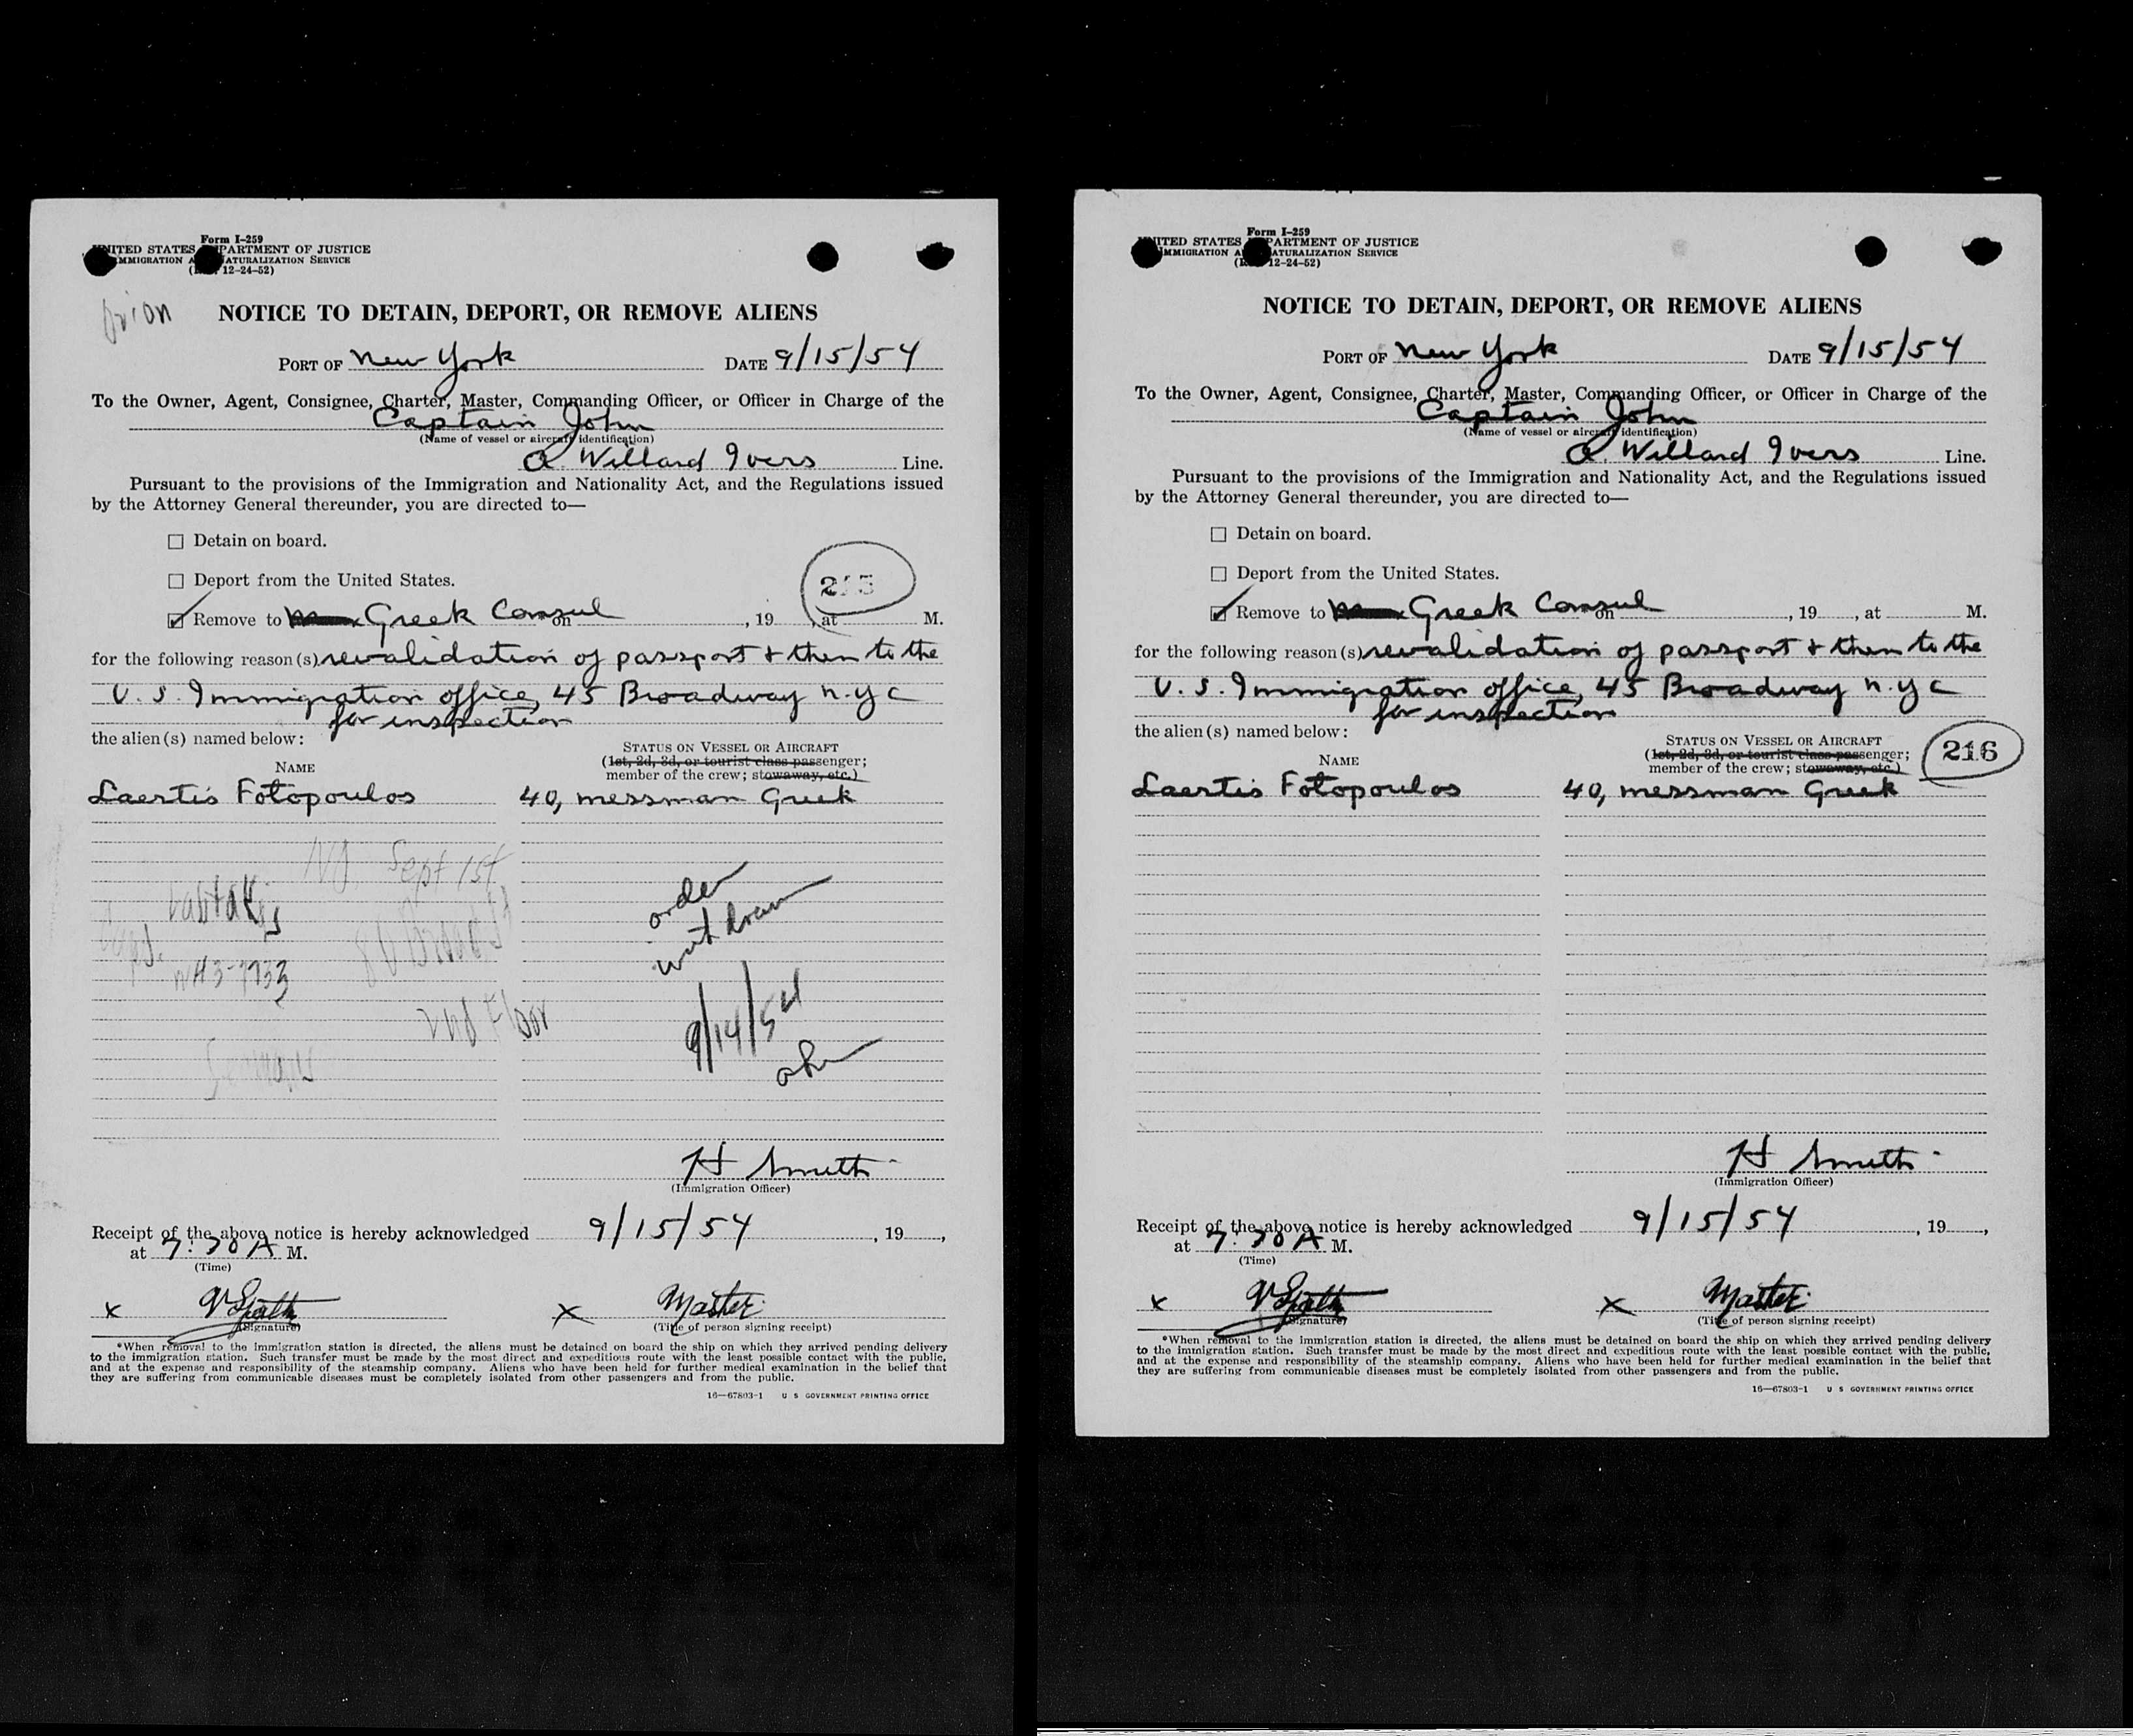 Form I-259
UNITED STATES DEPARTMENT OF JUSTICE
IMMIGRATION AND NATURALIZATION SERVICE
12-24-52)
NOTICE TO DETAIN, DEPORT, OR REMOVE ALIENS
PORT OF New York DATE 9/15/54
To the Owner, Agent, Consignee, Charter, Master, Commanding Officer, or Officer in Charge of the
Captain John
(Name of vessel or aircraft identification)
A. Willard Ivers Line.
Pursuant to the provisions of the Immigration and Nationality Act, and the Regulations issued
by the Attorney General thereunder, you are directed to—
☐ Detain on board.
☐ Deport from the United States.
215
☑ Remove to Greek Consul on , 19 , at M.
for the following reason(s) revalidation of passport & then to the
U. S. Immigration office, 45 Broadway N.Y C
for inspection
the alien(s) named below:
STATUS ON VESSEL OR AIRCRAFT
(1st, 2d, 3d, or tourist class passenger;
NAME member of the crew; stowaway, etc.)
Laertis Fotopoulos 40, messman Greek
NY Sept 1st
order
WH3-7733
80 Broad St
2nd Floor
9/14/54
H Smith
(Immigration Officer)
Receipt of the above notice is hereby acknowledged 9/15/54 , 19 ,
at 7:30 A M.
(Time)
x x Master
(Signature) (Title of person signing receipt)
*When removal to the immigration station is directed, the aliens must be detained on board the ship on which they arrived pending delivery
to the immigration station. Such transfer must be made by the most direct and expeditious route with the least possible contact with the public,
and at the expense and responsibility of the steamship company. Aliens who have been held for further medical examination in the belief that
they are suffering from communicable diseases must be completely isolated from other passengers and from the public.
16—67803-1 U S GOVERNMENT PRINTING OFFICE
Form I-259
UNITED STATES DEPARTMENT OF JUSTICE
IMMIGRATION AND NATURALIZATION SERVICE
12-24-52)
NOTICE TO DETAIN, DEPORT, OR REMOVE ALIENS
PORT OF New York DATE 9/15/54
To the Owner, Agent, Consignee, Charter, Master, Commanding Officer, or Officer in Charge of the
Captain John
(Name of vessel or aircraft identification)
A. Willard Ivers Line.
Pursuant to the provisions of the Immigration and Nationality Act, and the Regulations issued
by the Attorney General thereunder, you are directed to—
☐ Detain on board.
☐ Deport from the United States.
☑ Remove to Greek Consul on , 19 , at M.
for the following reason(s) revalidation of passport & then to the
U. S. Immigration office, 45 Broadway N.Y C
for inspection
the alien(s) named below:
STATUS ON VESSEL OR AIRCRAFT
(1st, 2d, 3d, or tourist class passenger; 216
NAME member of the crew; stowaway, etc.)
Laertis Fotopoulos 40, messman Greek
H Smith
(Immigration Officer)
Receipt of the above notice is hereby acknowledged 9/15/54 , 19 ,
at 7:30 A M.
(Time)
x x Master
(Signature) (Title of person signing receipt)
*When removal to the immigration station is directed, the aliens must be detained on board the ship on which they arrived pending delivery
to the immigration station. Such transfer must be made by the most direct and expeditious route with the least possible contact with the public,
and at the expense and responsibility of the steamship company. Aliens who have been held for further medical examination in the belief that
they are suffering from communicable diseases must be completely isolated from other passengers and from the public.
16—67803-1 U S GOVERNMENT PRINTING OFFICE